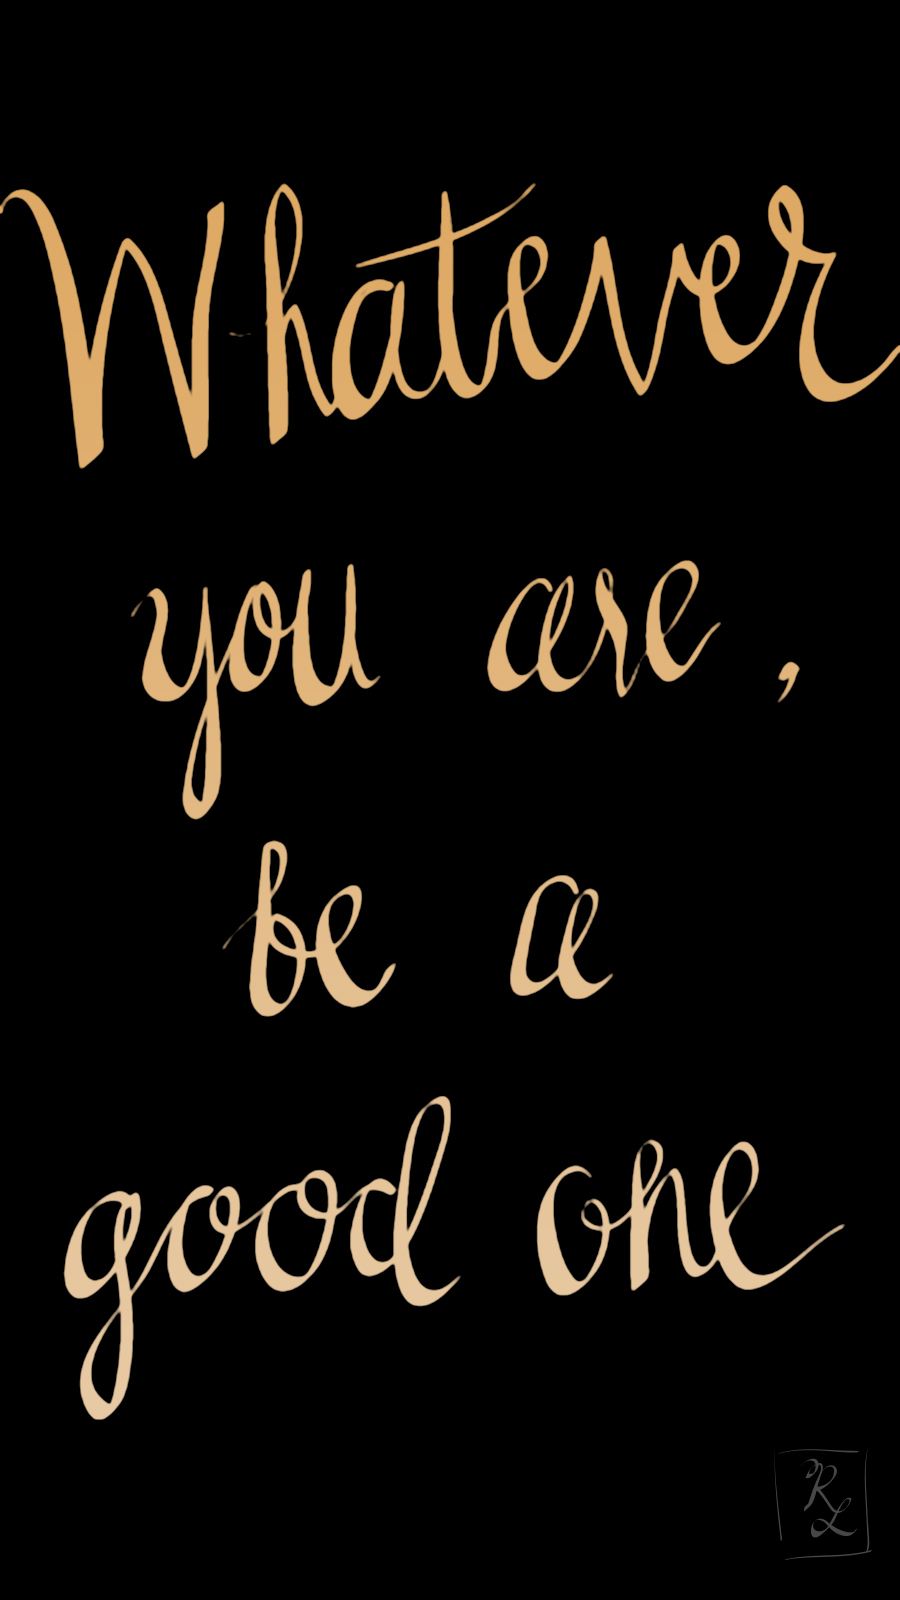 Whatever
you are,
be a
good one
RL